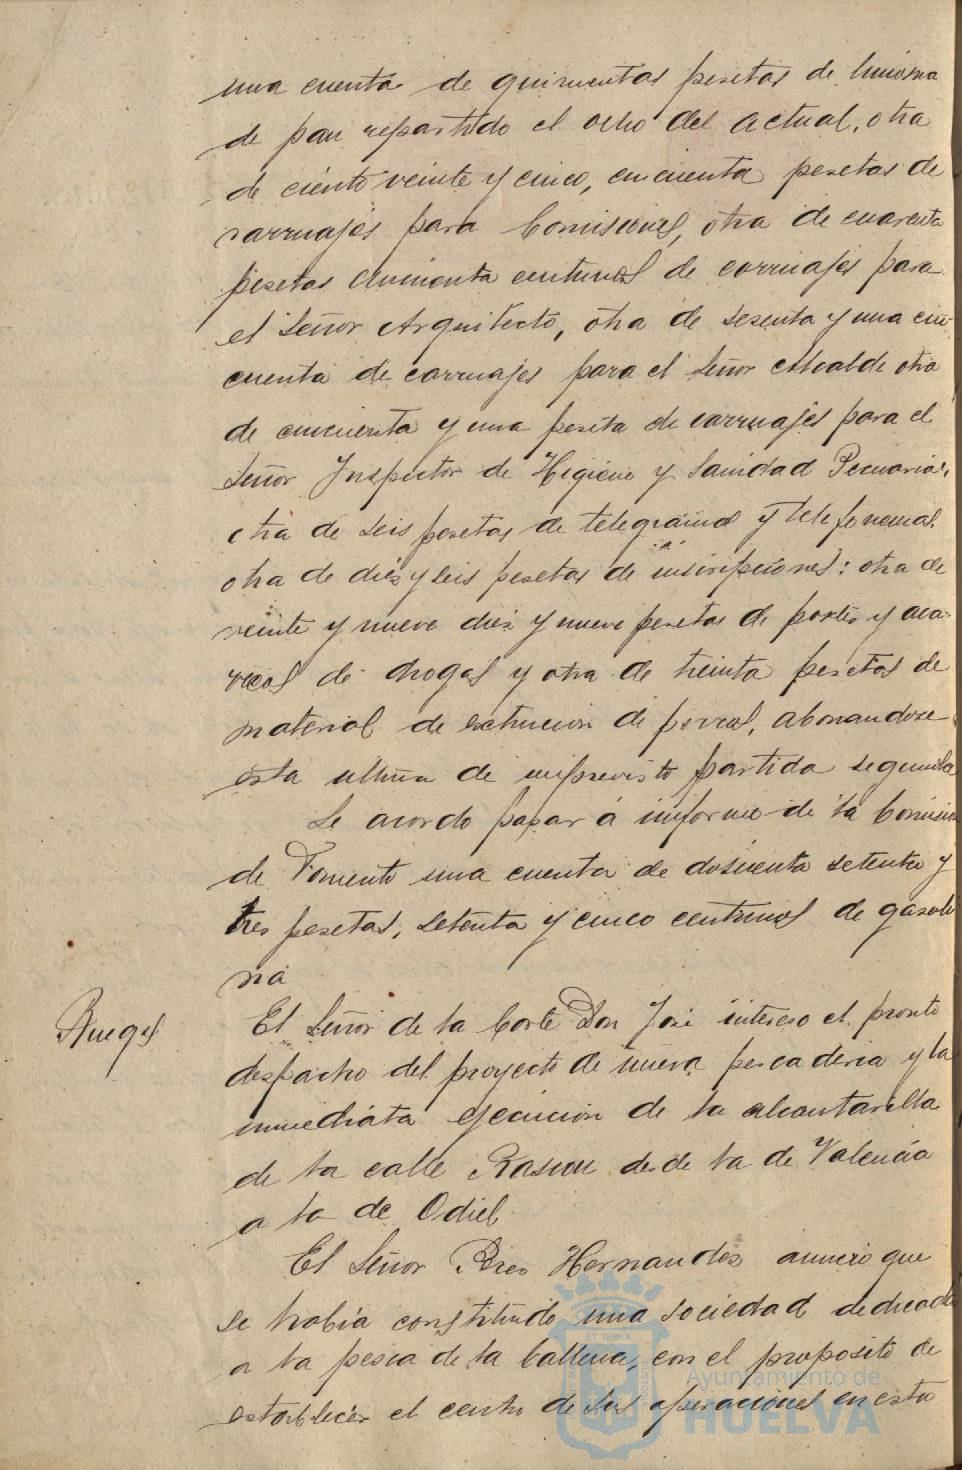 una cuenta de quinientas pesetas de limosna
de pan repartido el ocho del actual, otra
de ciento veinte y cinco, cincuenta pesetas de
carruajes para Comisiones, otra de cuarenta
pesetas cincuenta centimos de carruajes para
el Señor Arquitecto, otra de sesenta y una cin
cuenta de carruajes para el Señor Alcalde otra
de cincuenta y una peseta de carruajes para el
Señor Inspector de Higiene y Sanidad Pecuaria,
otra de seis pesetas de telegramas y telefonemas
otra de diez y seis pesetas de inscripciones: otra de
veinte y nueve diez y nueve pesetas de portes y aca-
rreos de drogas y otra de treinta pesetas de
material de extincion de perros, abonandose
esta ultima de imprevisto partida segunda
Se acordo pasar á informe de la Comision
de Fomento una cuenta de doscienta setenta y
tres pesetas, setenta y cinco centimos de gasoli
na
Ruegos
El Señor de la Corte Don José intereso el pronto
despacho del proyecto de nueva pescaderia y la
inmediata ejecucion de la alcantarilla
de la calle Rascon desde la de Valencia
a la de Odiel
El Señor Perez Hernandez anuncio que
se habia constituido una sociedad dedicada
a la pesca de la ballena, con el proposito de
establecer el centro de sus operaciones en esta
Ayuntamiento de
HUELVA